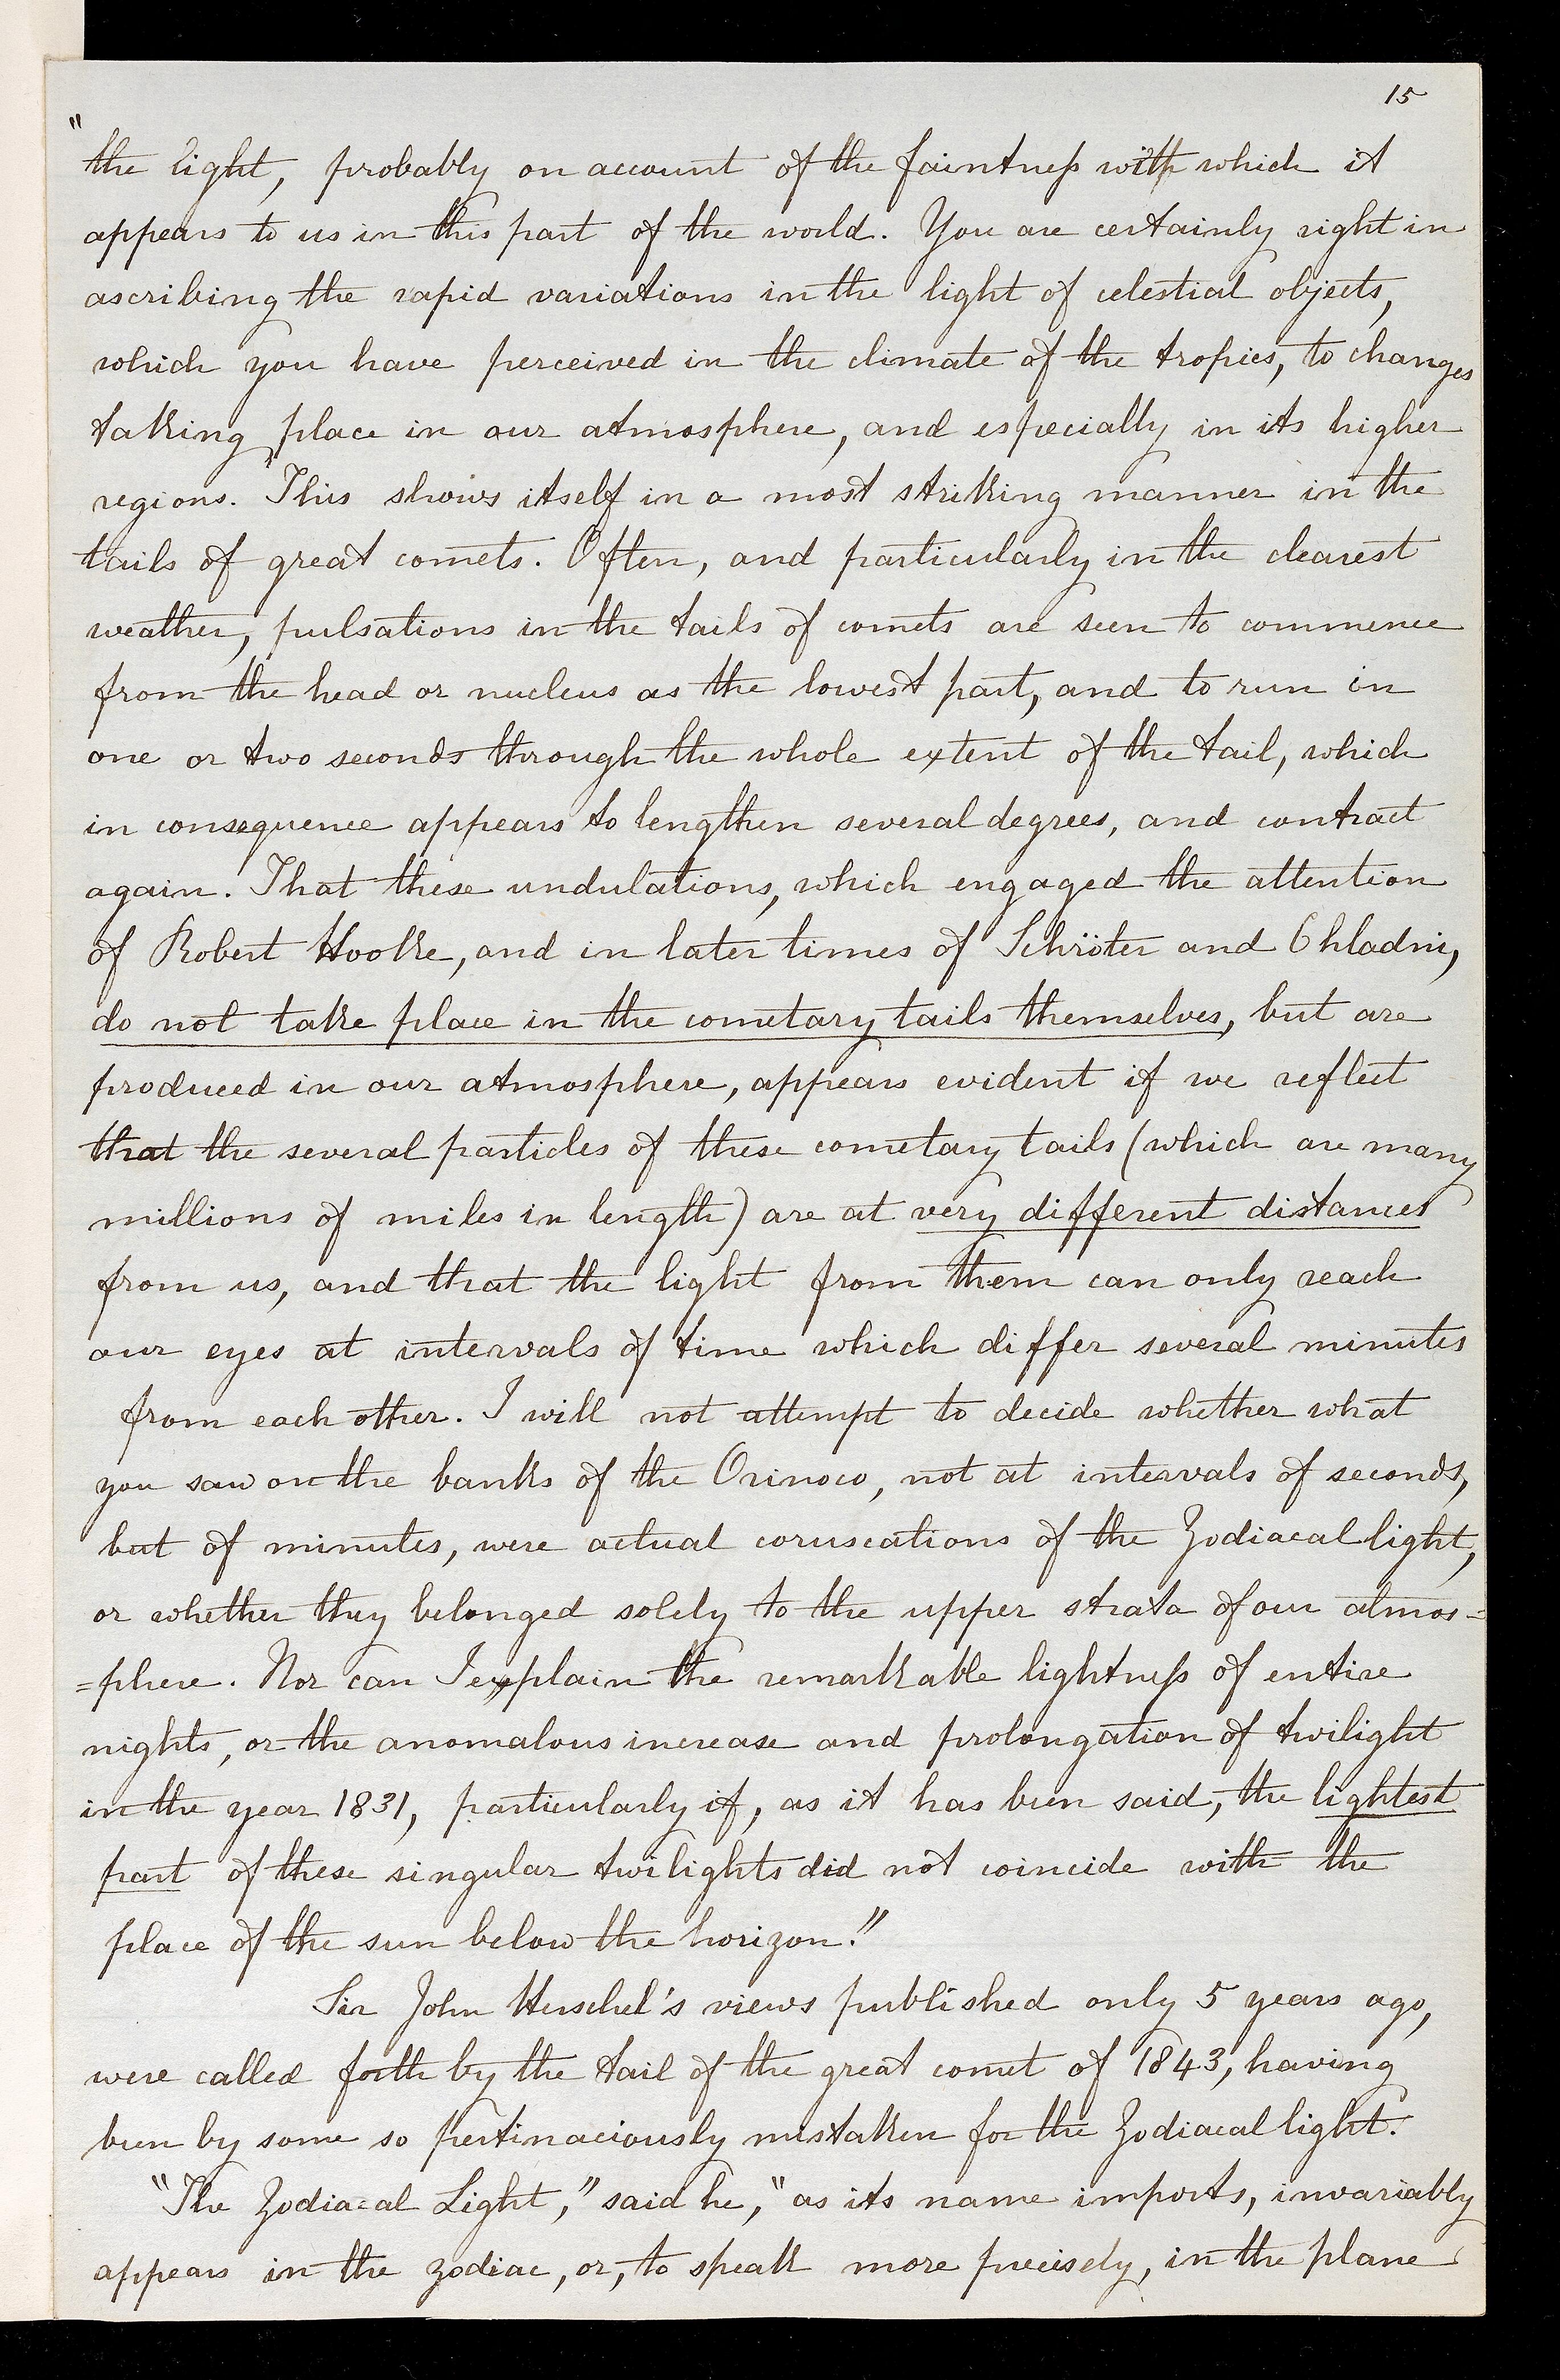 15
"
the light, probably on account of the faintness with which it
appears to us in this part of the world. You are certainly right in
ascribing the rapid variations in the light of celestial objects,
which you have perceived in the climate of the tropics, to changes
taking place in our atmosphere, and especially in its higher
regions. This shows itself in a most striking manner in the
tails of great comets. Often, and particularly in the clearest
weather, pulsations in the tails of comets are seen to commence
from the head or nucleus as the lowest part, and to run in
one or two seconds through the whole extent of the tail, which
in consequence appears to lengthen several degrees, and contract
again. That these undulations, which engaged the attention
of Robert Hooke, and in later times of Schröter and Chladni,
do not take place in the cometary tails themselves, but are
produced in our atmosphere, appears evident if we reflect
that the several particles of these cometary tails (which are many
millions of miles in length) are at very different distances
from us, and that the light from them can only reach
our eyes at intervals of time which differ several minutes
from each other. I will not attempt to decide whether what
you saw on the banks of the Orinoco, not at intervals of seconds,
but of minutes, were actual coruscations of the Zodiacal light,
or whether they belonged solely to the upper strata of our atmos=
=phere. Nor can I explain the remarkable lightness of entire
nights, or the anomalous increase and prolongation of twilight
in the year 1831, particularly if, as it has been said, the lightest
part of these singular twilights did not coincide with the
place of the sun below the horizon."
Sir John Herschel's views published only 5 years ago,
were called forth by the tail of the great comet of 1843, having
been by some so pertinaciously mistaken for the Zodiacal light.
"The Zodiacal Light," said he, "as its name imports, invariably
appears in the zodiac, or, to speak more precisely, in the plane